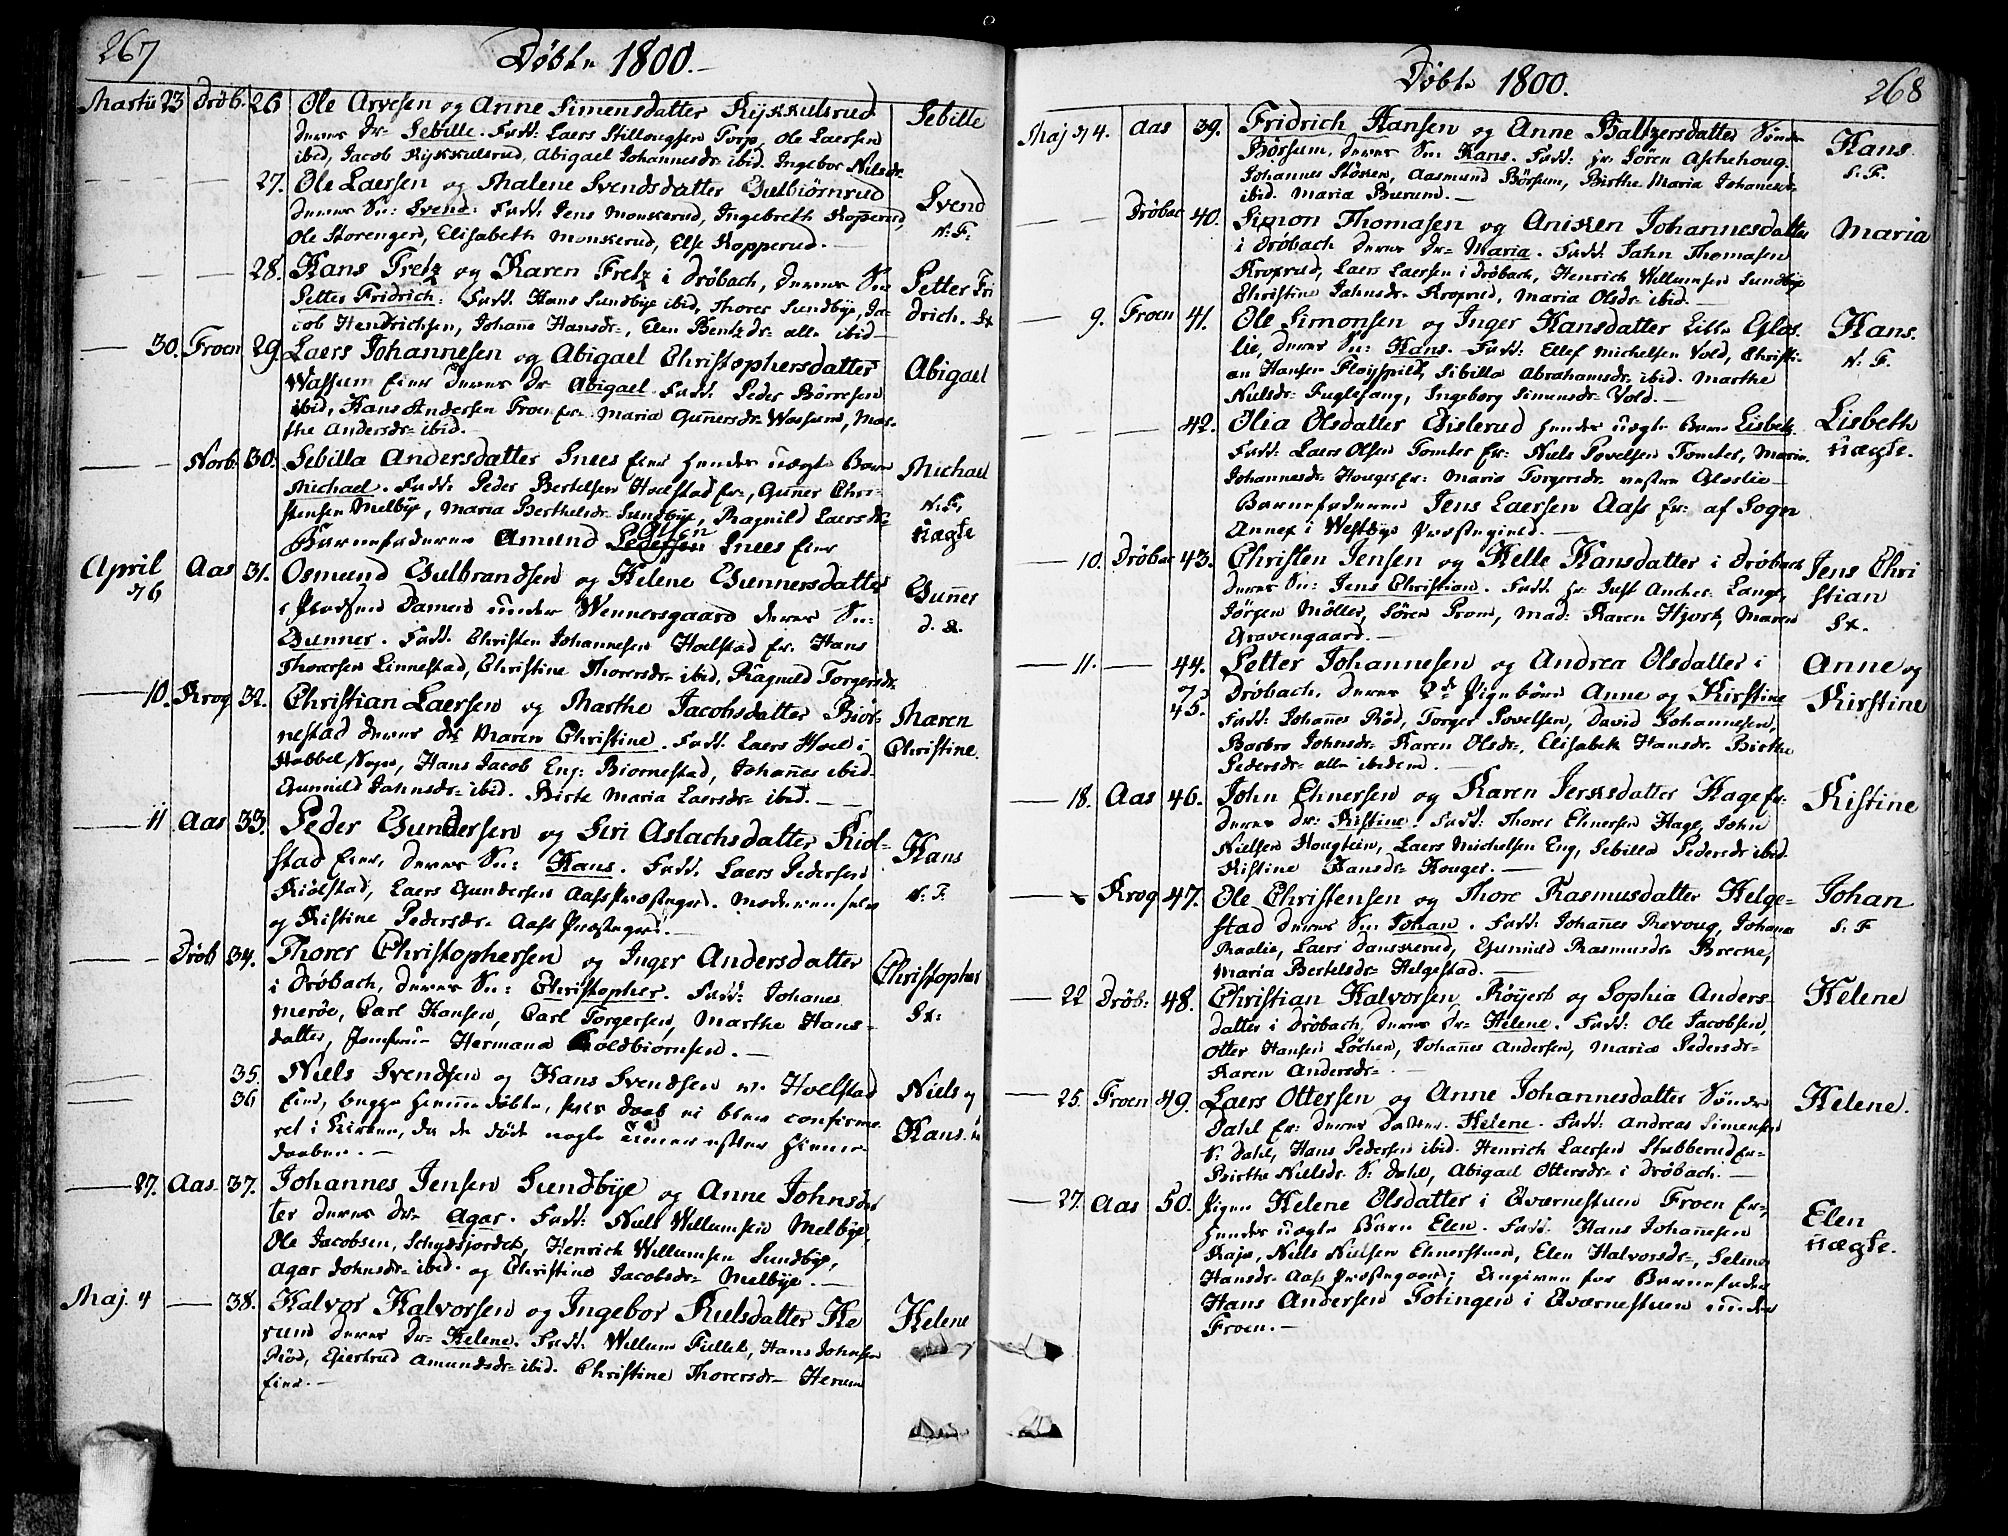 267
Döbte 1800.
Martii 23 Dröb. 26 Ole Arvesen og Anne Simensdatter Rykkelsrud Sebille
deres Dr Sebille. Fadd: Laers Stillougsen Torp, Ole Laersen
ibid, Jacob Rykkelsrud, Abigael Johannesdr ibid. Ingebor Nilsdr
27. Ole Laersen og Malene Svendsdatter Gulbiörnrud Svend
deres Sn: Svend: Fadd: Jens Monskerud, Ingebreth Kopperud, N: F:
Ole Storenger, Elisabeth Monskerud, Else Kopperud.
28. Hans Fretz og Karen Fretz i Dröbach, deres Sn Petter Fri
Petter Fridrich: Fadd. Hans Sundbye ibid, Thorer Sundbye, Ja- drich. St
cob Hendrichsen, Johane Hansdr, Elen Bentzdr alle ibid
30. Froen 29. Laers Johannesen og Abigael Christophersdatter Abigael
Wassum Eier deres Dr Abigael. Fadd: Peder Börresen
ibid, Hans Andersen Froen Er. Maria Guñersdr Wassum, Mar-
the Andersdr ibid.
Norb. 30. Sebilla Andersdatter Snees Eier hendes uægte Barn Michael
Michael. Fadd: Peder Bertelsen Holstad Er., Guñer Chri- N: F,
stensen Melbye, Maria Berthelsdr Sundbye, Ragnild Laersdr uægte
Barnefaderen Amund Pedersen Olsen Snees Eier
April 6 Aas 31. Osmund Gulbrandsen og Helene Gunnersdatter Guñer
i Pladsen Damen under Wennersgaard deres Sn: d. 8.
Gunner. Fadd. Christen Johannesen Holstad Er: Hans
Thoresen Linnestad, Christine Thorersdr ibid, Ragnild Torgersdr
10. Krog 32. Christian Laersen og Marthe Jacobsdatter Biör- Maren
nestad deres dr Maren Christine. Fadd: Laers Hoel i Christine.
Hobbel Sogn, Hans Jacob Eng: Biornestad, Johañes ibid.
Gunnild Jahnsdr ibid. Birte Maria Laersdr ibid.
11 Aas 33. Peder Gundersen og Siri Aslachsdatter Kiol- Hans
stad Eier, deres Sn: Hans. Fadd. Laers Pedersen N: F.
Kiölstad, Laers Gundersen Aass Præstegrd. Moderen selv
og Kistine Pedersdr Aass Præstegrd.
Dröb 34. Thorer Christophersen og Inger Andersdatter Christopher
i Dröbach, deres Sn: Christopher. Fadd: Johanes St:
Meröe, Carl Hansen, Carl Torgersen, Marthe Hans-
datter, Jomfru Hermana Koldbiornsen.
35. Niels Svendsen og Hans Svendsen n: Holstad Niels og
36 Eier, begge hiemedöbte, hvis daab ei blev confirme- Hans.
ret i Kirken, da de döde nogle timer efter hieme-
daaben.
27. Aas. 37. Johannes Jensen Sundbye og Anne Johnsdat
ter deres dr Agar. Fadd: Niels Willumsen Melbye,
Ole Jacobsen, Schydsjordet, Henrich Willumsen Sundbye,
Agar Johnsdr ibid. og Christine Jacobsdr Melbye.
Maj. 4 38. Halvor Halvorsen og Ingebor Nielsdatter He Helene
rum deres dr Helene. Fadd: Willum Fullek, Hans Johnsen
Röd, Giertrud Amundsdr ibid. Christine Thorersdr Herum
Eier.
268
Döbte 1800.
Maj 4. Aas 39. Fridrich Hansen og Anne Baltzersdatter Söndr Hans
Börsum, deres Sn: Hans. Fadd: hr Sören Aschehoug S: F.
Johannes Stöxen, Aasmund Börsum, Birthe Maria Johanesdr
ibid. Maria Burum.
Dröbac 40. Simon Thomasen og Anixen Johannesdatter Maria
i Dröbach deres Dr Maria. Fadd: Jahn Thomasen
Kroprud, Laers Laersen i Dröbach, Henrich Willumsen Sundbye
Christine Jahnsdr Kroprud, Maria Olsdr ibid.
9. Froen 41. Ole Simonsen og Inger Hansdatter Lille Glos Hans.
lie, deres Sn: Hans. Fadd: Ellef Michelsen Vold, Christi- N: F.
an Hansen Floyspilt, Sibilla Abrahamsdr ibid. Marthe
Nielsdr Fuglesang, Ingeborg Simensdr Vold.
42. Olia Olsdatter Gislerud hendes uægte Barn Lisbeth Lisbeth
Fadd: Laers Olsen Tomter Er: Niels Povelsen Tomter, Maria uægte.
Johannesdr Houger Er: Maria Torgersdr vestre Gloslie
Barnefaderen Jens Laersen Aass Er: af Sogn
Annex i Westbye Præstegield.
10. Dröbac 43. Christen Jensen og Helle Hansdatter i Dröbach Jens Chri
deres Sn: Jens Christian. Fadd: hr Just Ancher Lange, stian
Jörgen Möller, Sören Prom, Mad: Karen Hjort, Maren St.
Gravengaard.
11. 44. Petter Johannesen og Andrea Olsdatter i Anne og
45. Dröbach. deres 2de Pigebörn Anne og Kirstine Kirstine
Fadd: Johañes Röd, Torger Povelsen, David Johannesen,
Barbro Johnsdr Karen Olsdr, Elisabeth Hansdr Birthe
Pedersdr alle ibidem.
18. Aas 46. John Ehnersen og Karen Jerksdatter Hage Er. Kistine
deres dr: Kistine. Fadd: Thorer Ehnersen Hage, John
Nielsen Hougstein, Laers Michelsen Eng, Sebilla Pedersdr ibid.
Kistine Hansdr Houger.
Krog 47. Ole Christensen og Thore Rasmusdatter Helge- Johan
stad deres Sn: Johan. Fadd: Johañes Prevoug, Johanes S: F
Raalie, Laers Danskerud, Gunnild Rasmusdr Brecke,
Maria Bertelsdr Helgestad.
22 Dröb: 48. Christian Halvorsen Röyert og Sophia Anders- Helene
datter i Dröbach, deres dr Helene. Fadd: Ole Jacobsen,
Otter Hansen Löchen, Johañes Andersen, Maria Pedersdr
Karen Andersdr.
25. Froen 49. Laers Ottersen og Anne Johannesdatter Söndre Helene.
Dahl Er: deres datter. Helene. Fadd: Andreas Simensen
S: Dahl, Hans Pedersen ibid. Henrich Laersen Stubberud Er-
Birthe Nielsdr S: Dahl, Abigael Ottersdr i Dröbach.
27. Aas 50. Pigen Helene Olsdatter i Qværnestuen Froen Er, Elen
hendes uægte Barn Elen. Fadd. Hans Johañesen uægte.
Kaja, Niels Nielsen Ehnerstuen, Elen Halvorsdr, Helene
Hansdr Aass Præstegaard; Angiven for Barnefader
Hans Andersen Totingen i Qværnestuen under
Froen.